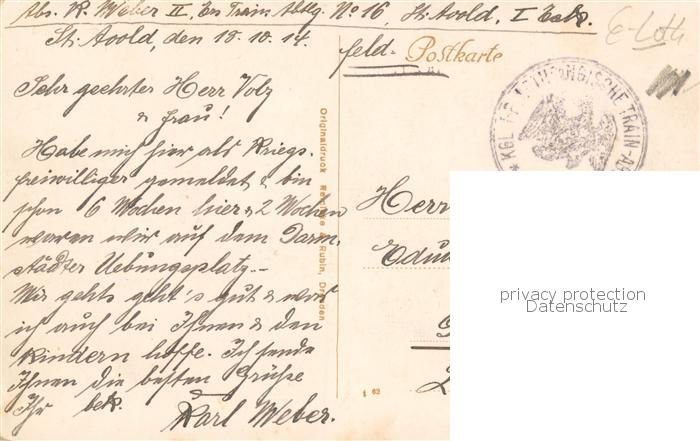 Abs. K. Weber II, Ers. Train Abtlg. No 16, St. Avold, I Esk.
St. Avold, den 18.10.14.
Feld-Postkarte
E-Loth
Sehr geehrter Herr Volz
& Frau!
Habe mich hier als Kriegs-
freiwilliger gemeldet & bin
schon 6 Wochen hier & 2 Wochen
waren wir auf dem Darm-
städter Uebungsplatz.-
Mir gehts geht's gut & was
ich auch bei Ihnen & den
Kindern hoffe. Ich sende
Ihnen die besten Grüße
Ihr bek.
Karl Weber.
Originaldruck Reichne & Rubin, Dresden
KGL. LOTHRINGISCHE TRAIN-A
Herr
Edu
1 63
privacy protection
Datenschutz